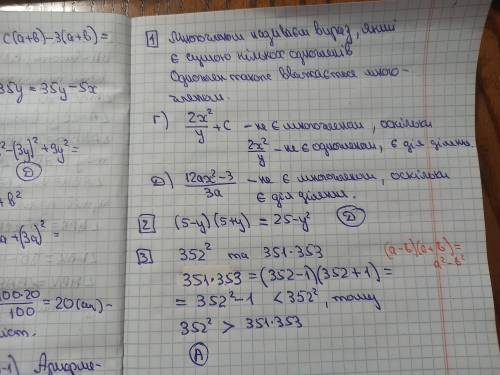 c(a+b)-3(a+b)=
35y = 35y-5x
-(3y)²+9y²=
Д
+b²
a+(3a)²=
100·20/100 = 20(
-1) Арифме-
1 Многочленом називаєм вираз, який
є сумою кількох одночленів
Одночлен також вважається много-
членом.
Г) 2x²/y + c - не є многочленом, оскільки
2x²/y - не є одночленом, є дія ділення.
Д) 12ax²-3/3a - не є многочленом, оскільки
є дія ділення.
2 (5-y)(5+y) = 25-y² Д
3 352² та 351·353
(a-b)(a+b)=
a²-b²
351·353 = (352-1)(352+1) =
= 352²-1 < 352², тому
352² > 351·353
А